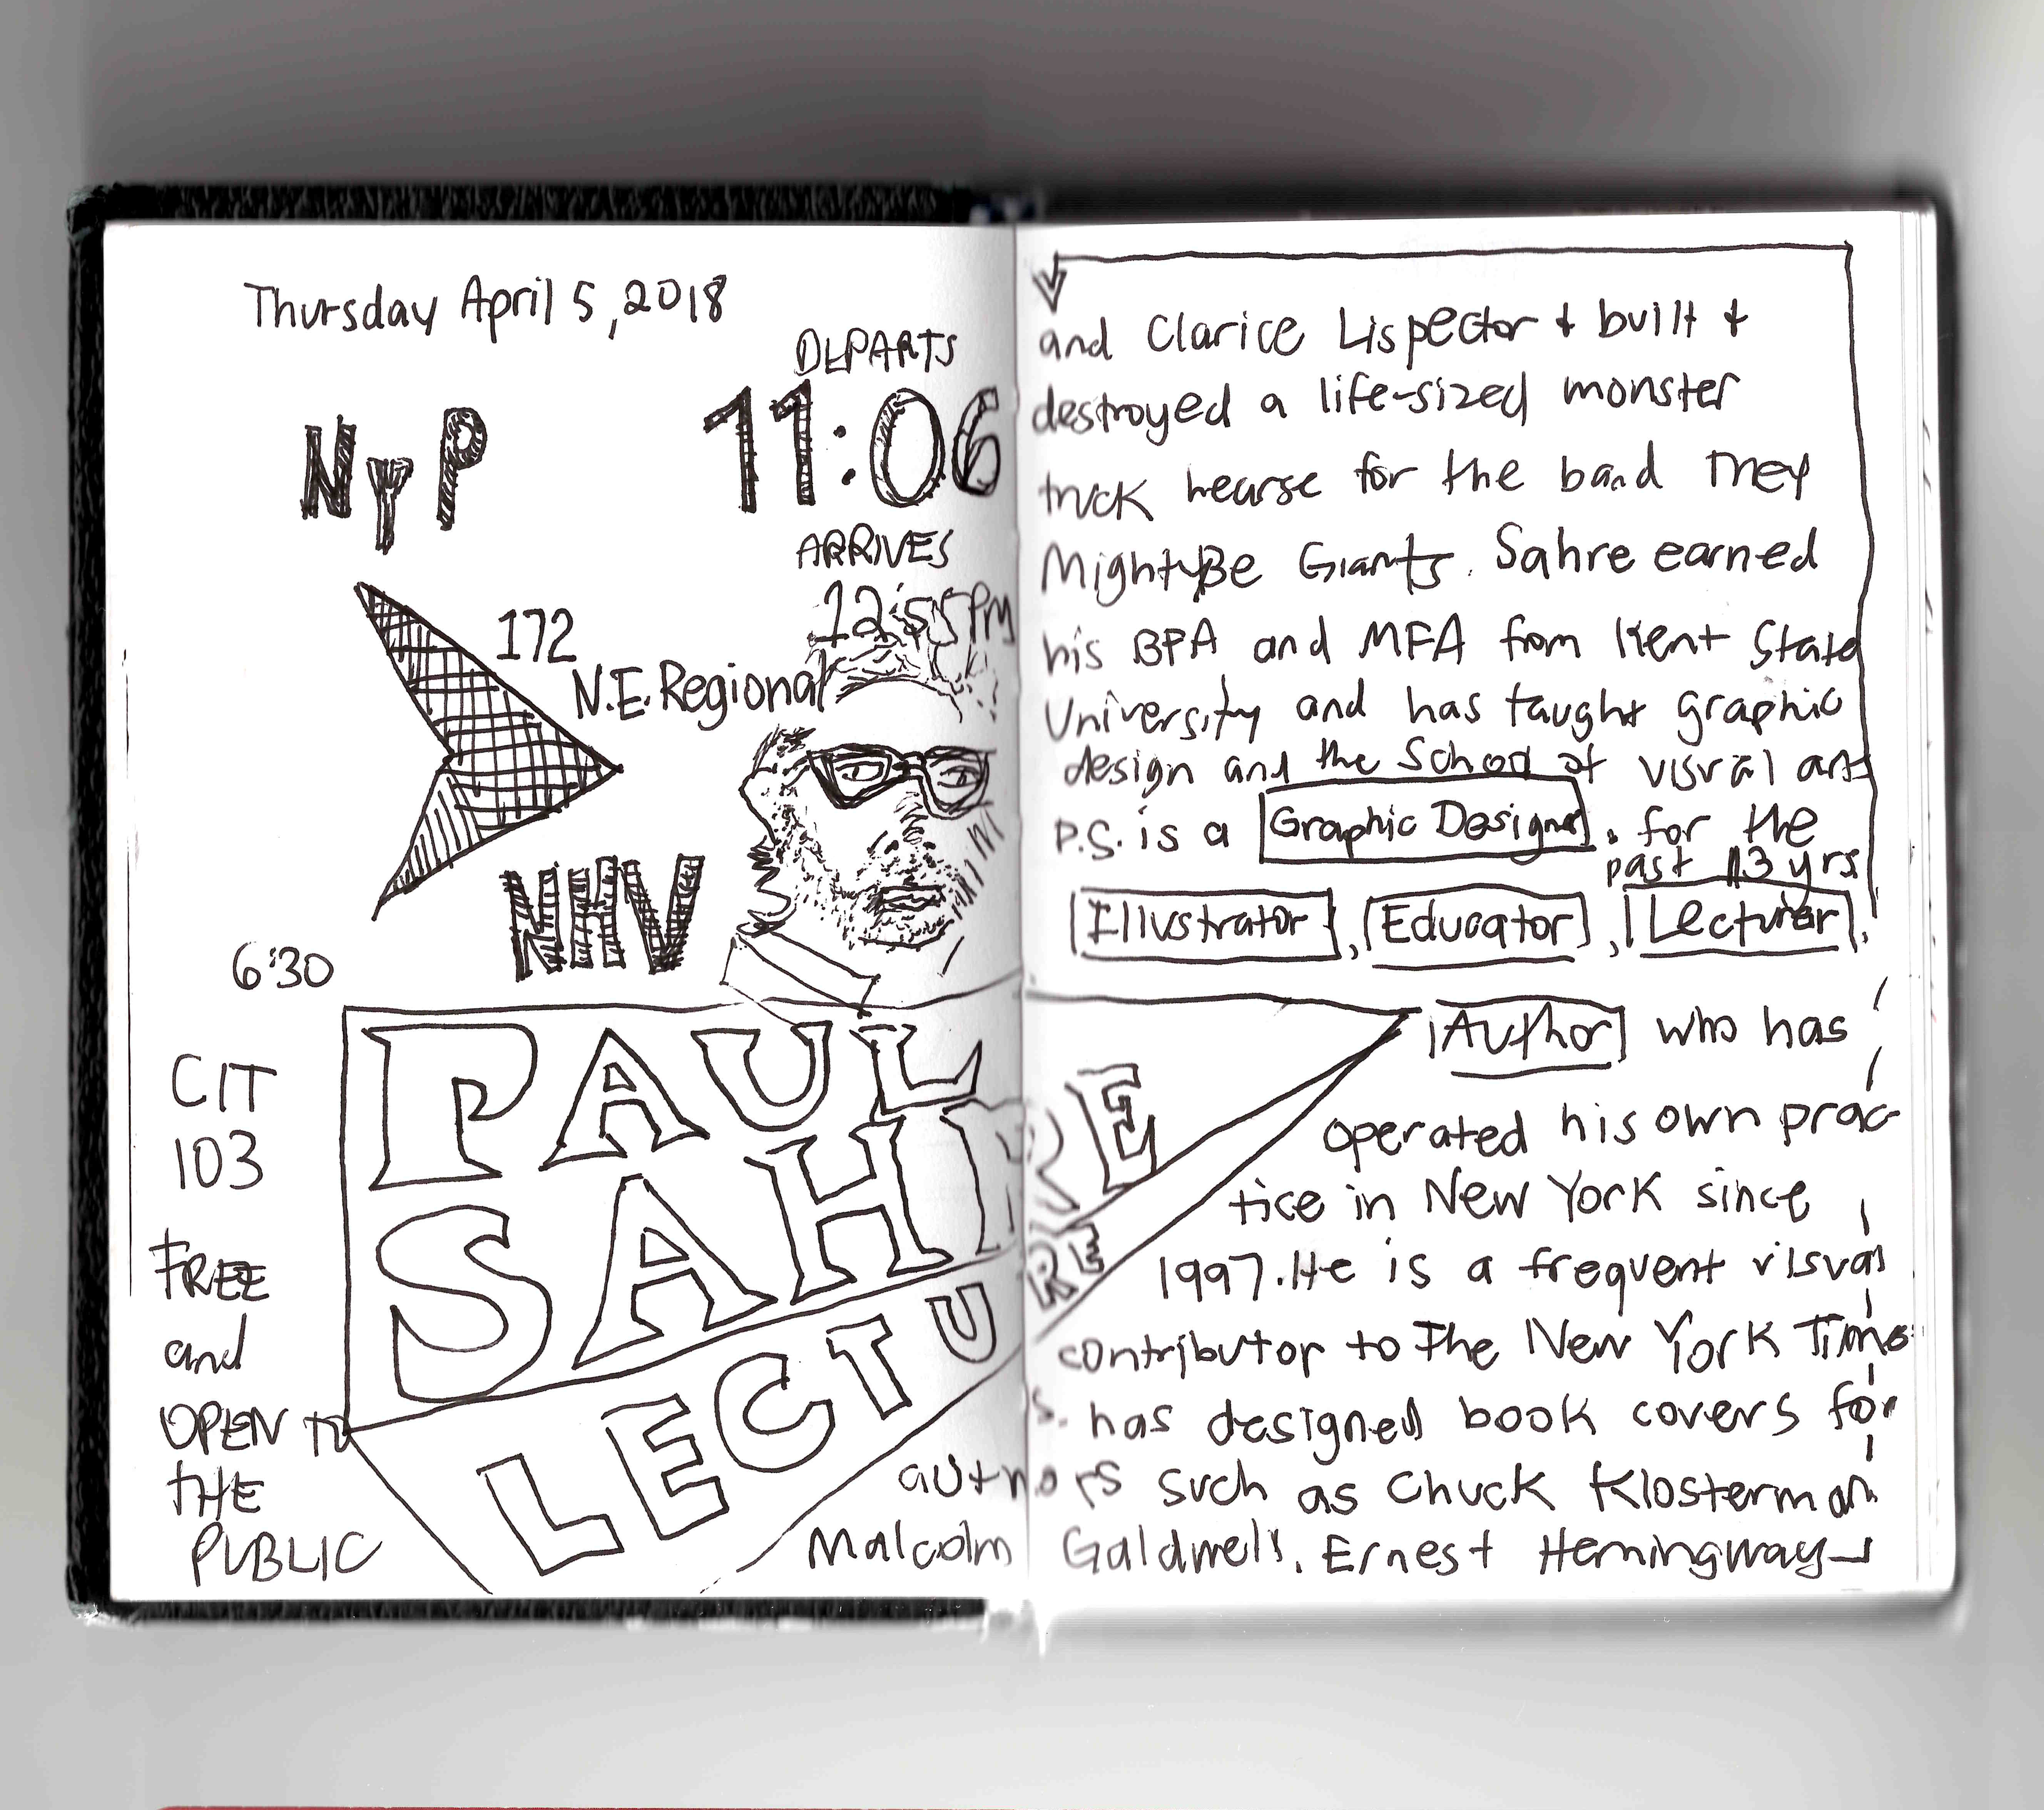 Thursday April 5, 2018
DEPARTS
NYP
11:06
ARRIVES
12:55PM
172
N.E. Regional
NHV
6:30
CIT
103
FREE
and
OPEN TO
THE
PUBLIC
PAUL
SAHRE
LECTURE
and Clarice Lispector + built +
destroyed a life-sized monster
truck hearse for the band They
Might Be Giants. Sahre earned
his BFA and MFA from Kent State
University and has taught graphic
design and the School of visual arts
P.S. is a Graphic Designer. for the
past 13 yrs
Illustrator, Educator, Lecturer,
Author who has
operated his own prac-
tice in New York since
1997. He is a frequent visual
contributor to The New York Time
s. has designed book covers for
authors such as Chuck Klosterman
Malcolm Galdwell, Ernest Hemingway